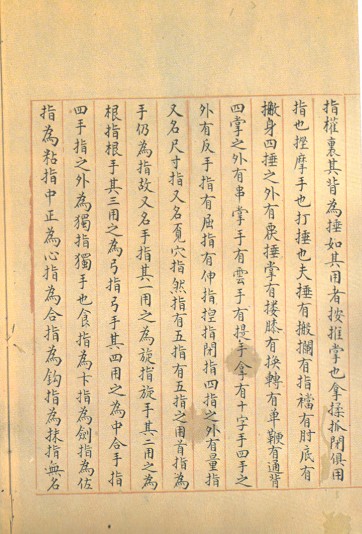 指權裏其背為捶如其用者按推掌也拿揉抓閉俱用
指也挫摩手也打捶也夫捶有搬攔有指襠有肘底有
撇身四捶之外有覆捶掌有摟膝有換轉有單鞭有通背
四掌之外有串掌手有雲手有提手拿有十字手四手之
外有反手指有屈指有伸指捏指閉指四指之外有量指
又名尺寸指又名覓穴指然指有五指有五指之用首指為
手仍為指故又名手指其一用之為旋指旋手其二用之為
根指根手其三用之為弓指弓手其四用之為中合手指
四手指之外為獨指獨手也食指為卞指為劍指為佐
指為粘指中正為心指為合指為鈎指為抹指無名